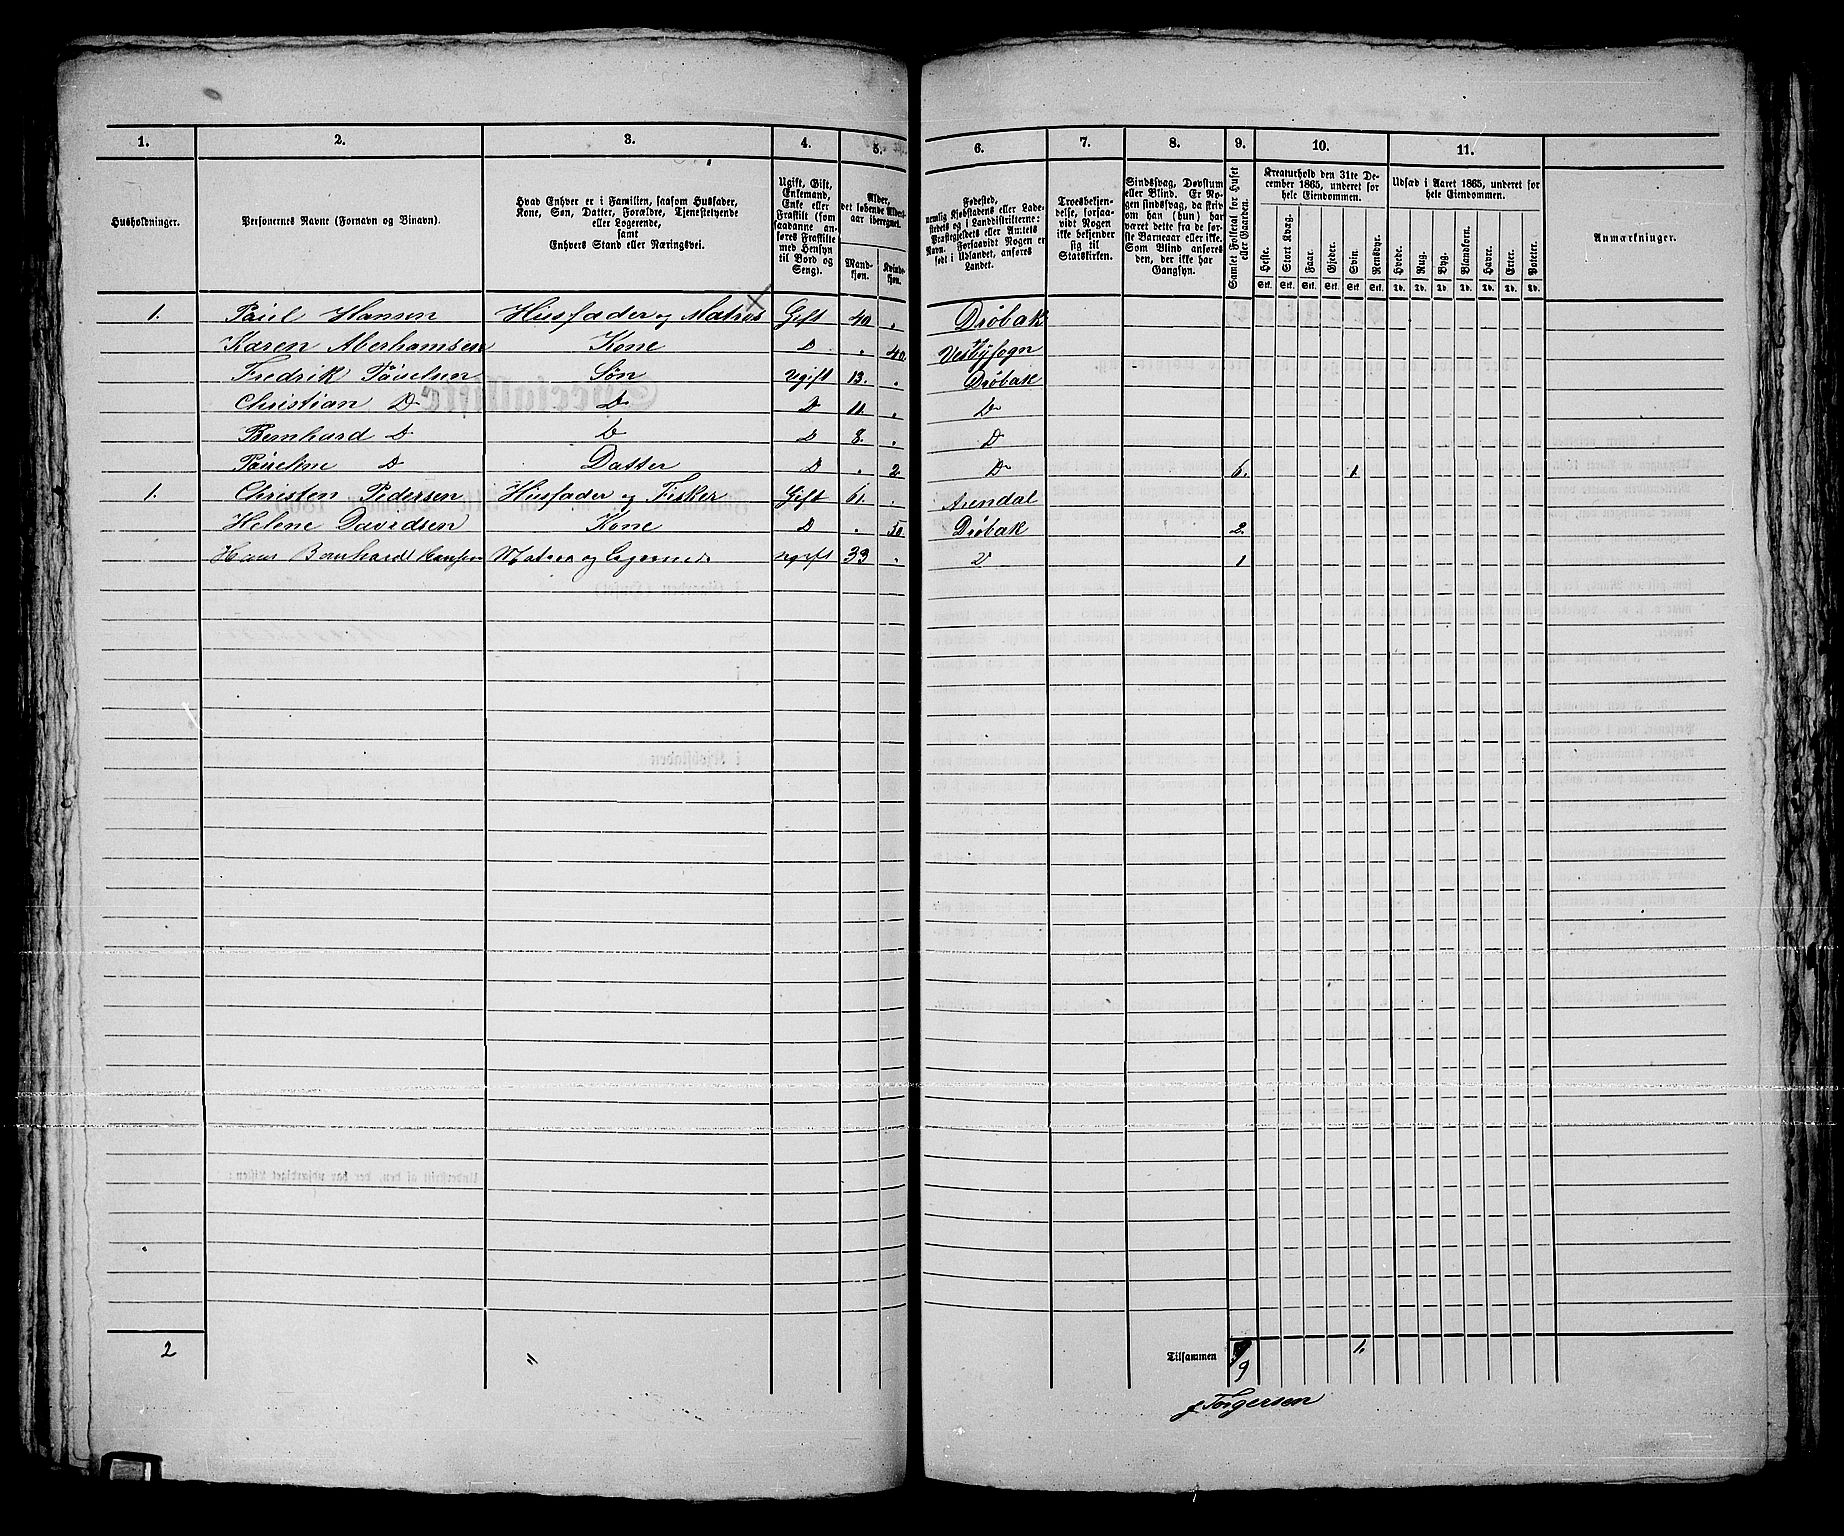 1. 2. 3. 4. 5. 6. 7. 8. 9. 10. 11.
Husholdninger.
Personernes Navne (Fornavn og Binavn).
Hvad Enhver er i Familien, saasom Husfader,
Kone, Søn, Datter, Forældre, Tjenestetyende
eller Logerende,
samt
Enhvers Stand eller Næringsvei.
Ugift, Gift,
Enkemand,
Enke eller
Fraskilt (som
saadanne an-
føres Fraskilte
med Hensyn
til Bord og
Seng).
Alder,
det løbende Alders-
aar iberegnet.
Mand-
kjøn.
Kvinde-
kjøn.
Fødested,
nemlig Kjøbstadens eller Lade-
stedets og i Landdistrikterne:
Præstegjeldets eller Amtets
Navn. Forsaavidt Nogen er
født i Udlandet, anføres
Landet.
Troesbekjen-
delse, forsaa-
vidt Nogen
ikke bekjender
sig til
Statskirken.
Sindssvag, Døvstum
eller Blind. Er No-
gen sindssvag, da skriv
om han (hun) har
været dette fra de før-
ste Barneaar eller ikke.
Som Blind anføres
den, der ikke har
Gangsyn.
Samlet Folketal for Huset
eller Gaarden.
Kreaturhold den 31te De-
cember 1865, underet for
hele Eiendommen.
Heste. Stort Kvæg. Faar. Gjeder. Svin. Rensdyr.
Stk. Stk. Stk. Stk. Stk. Stk.
Udsæd i Aaret 1865, underet for
hele Eiendommen.
Hvede. Rug. Byg. Blandkorn. Havre. Erter. Poteter.
Td. Td. Td. Td. Td. Td. Td.
Anmærkninger.
1. Paul Hansen Husfader og Matros Gift 40 " Drøbak
Karen Aberhamsen Kone D " 40 Vestbysogn
Fredrik Paulsen Søn Ugift 13. " Drøbak
Christian D D D 11. " D
Bernhard D D D 8. " D
Pauline D Datter D " 2. D 6. 1.
1. Christen Pedersen Husfader og Fisker Gift 61. " Arendal
Helene Davidsen Kone D " 50. Drøbak 2.
Hans Bernhard Hansen Matros og Logerende ugift 33 " D 1
2 " Tilsammen 9 1.
J. Torgersen